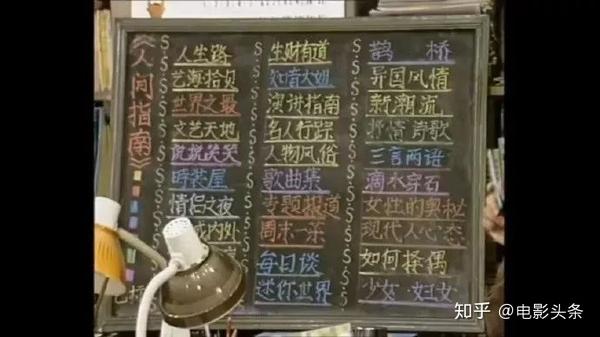 《人间指南》
人生路
艺海拾贝
世界之最
文艺天地
说说笑笑
時装屋
情侣之夜
城内外
生财有道
知音大姐
演讲指南
名人行踪
人物风俗
歌曲集
专题报道
周末一菜
每日谈
迷你世界
鹊桥
异国风情
新潮流
抒情诗歌
三言两语
滴水穿石
女性的奥秘
现代人心态
如何择偶
少女·妇女
知乎 @电影头条